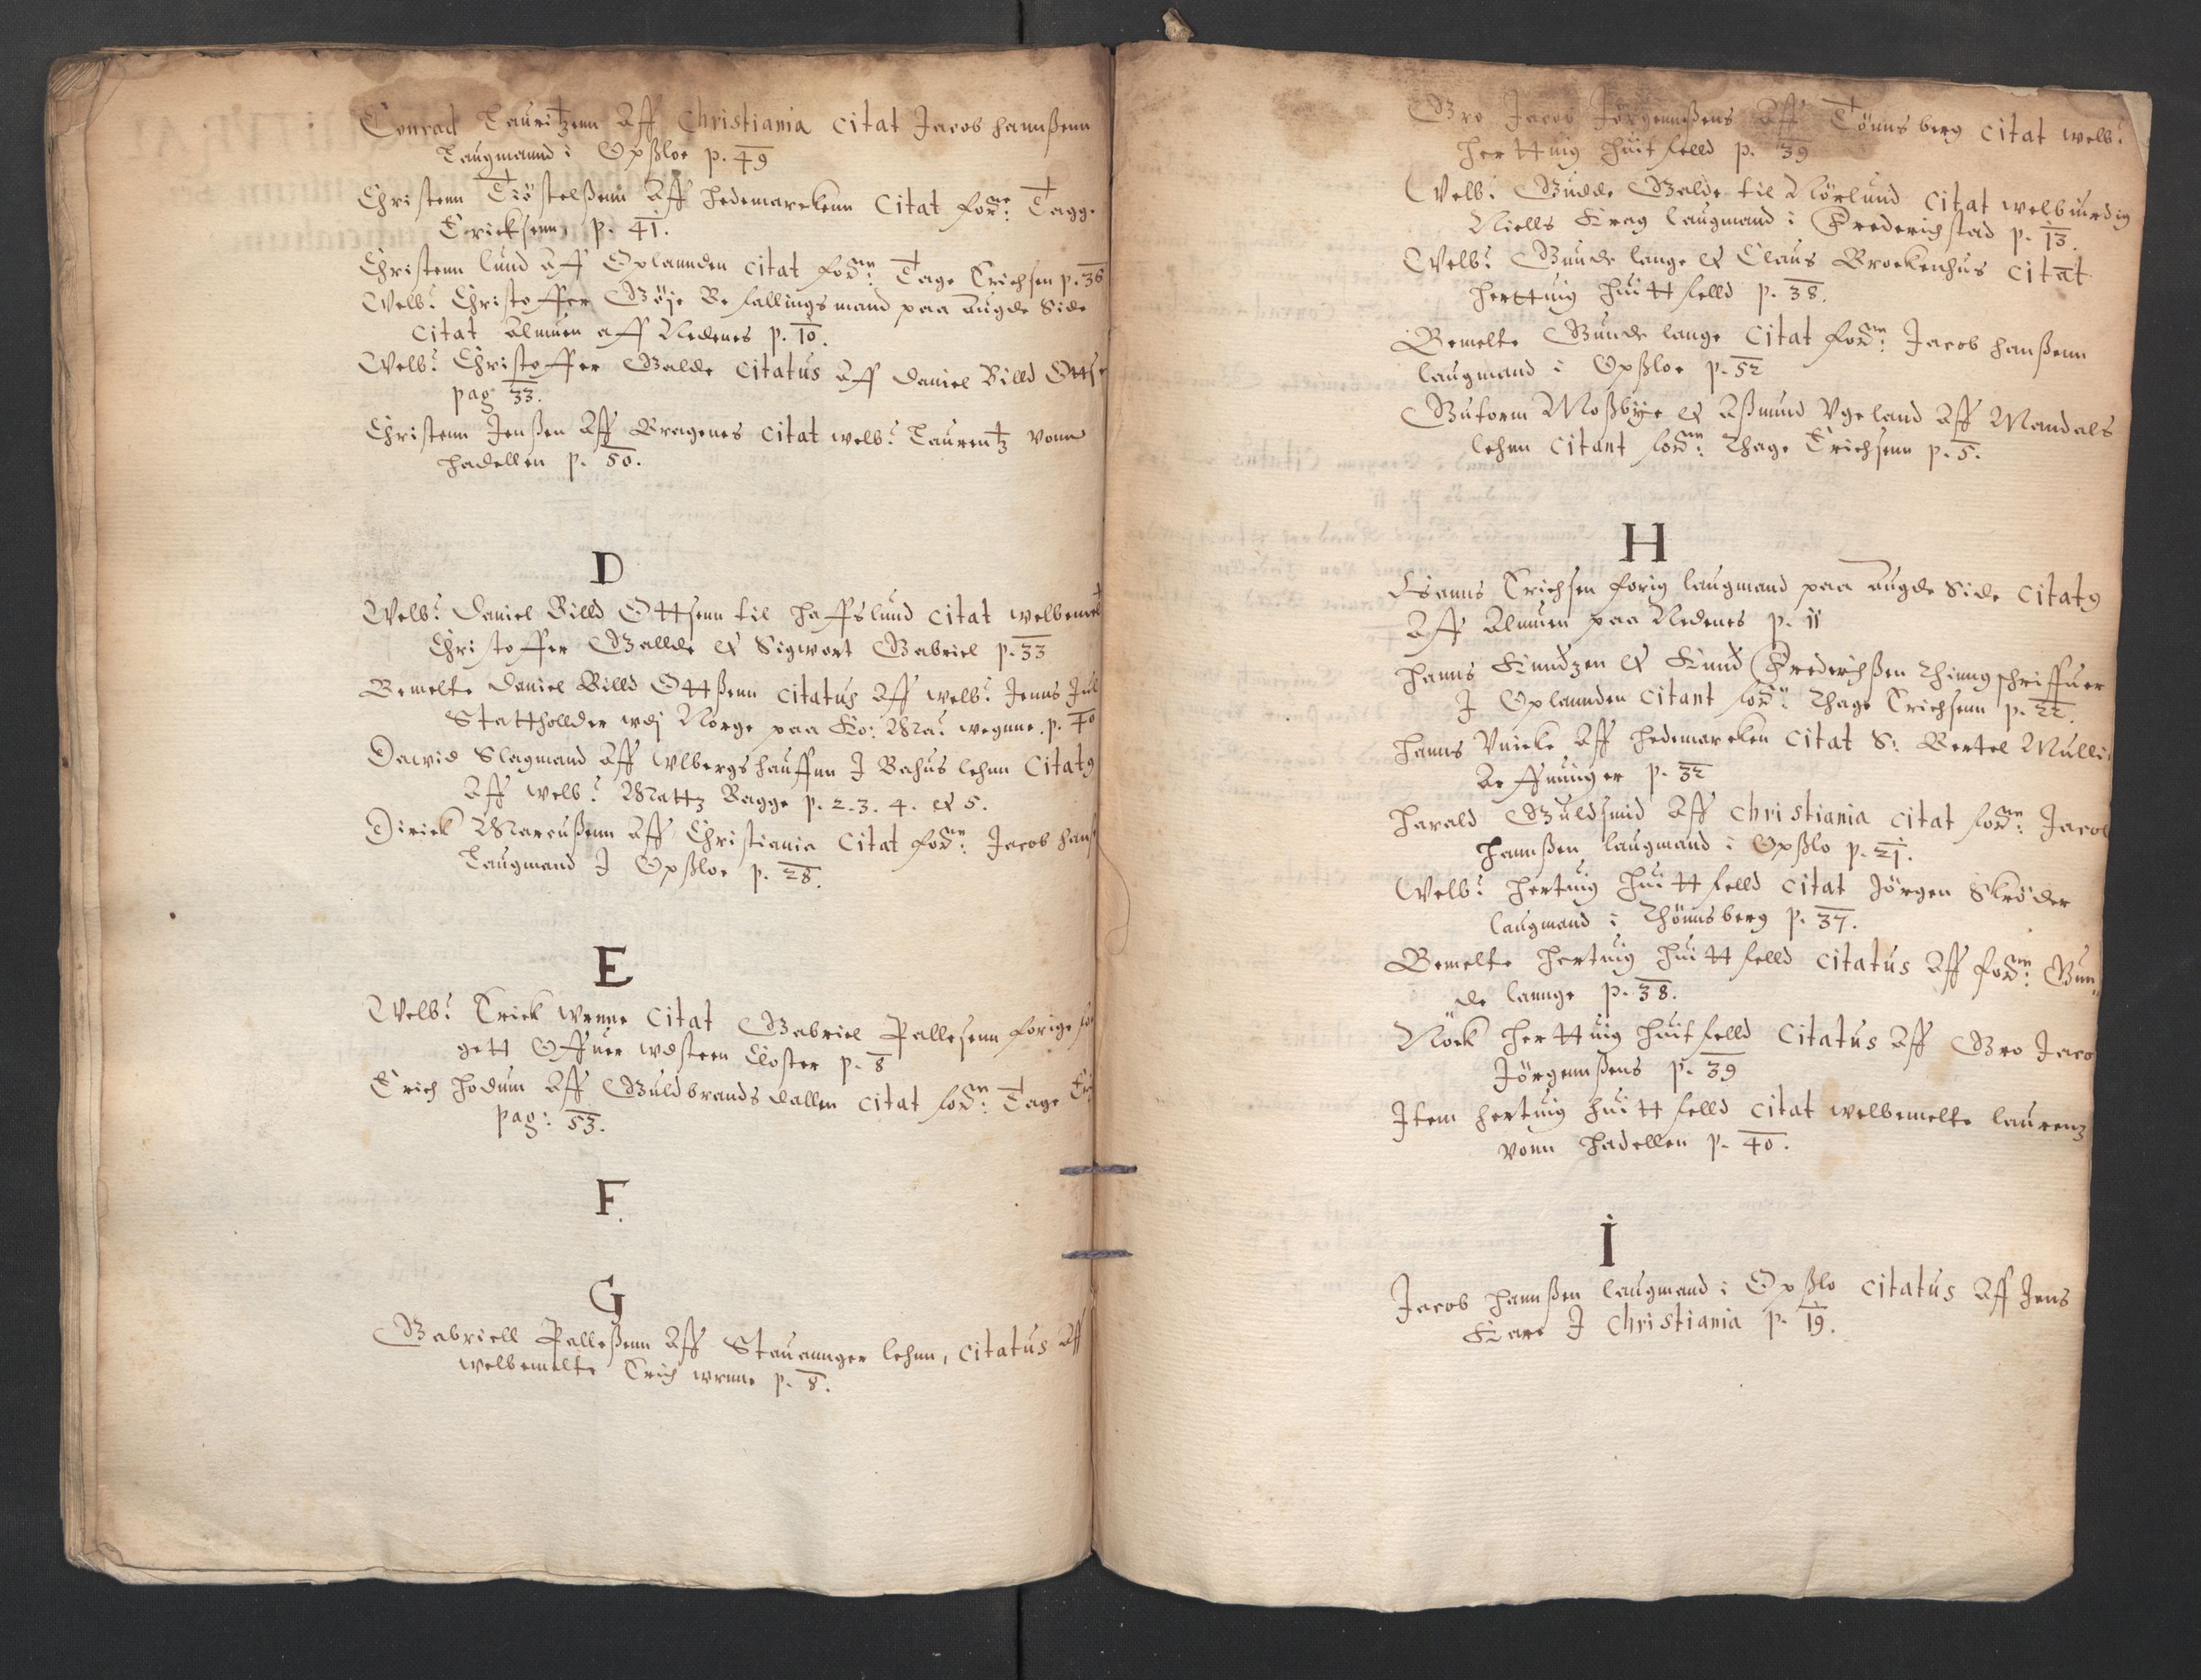 Conrad Lauritzenn Aff Christiania citat Jacob hannßenn
Laugmannd i Opßloe p. 49
Christenn Tiöstelßenn Aff hedemarckenn Citat fordne: Tagge
Ericksenn p. 41.
Christenn lund aff Oplannden citat fordnn: Tage Erichsen p. 36
Welb: Christoffer Göije Befallingsmand paa Augde Side
citat Almuen aff Nedenes p. 10.
Welb: Christoffer Galde citatus Aff Daniel Billd Otts
pag 33.
Christenn Jenßen Aff Bragenes citat welb: Laurentz vonn
hadellen p. 50.
D
Welb: Daniel Billd Ottsenn til haffslund citat welbemelt
Christoffer Gallde & Sigwort Gabriel p. 33
Bemelte Daniel Billd Ottßenn citatus Aff welb: Jenns Jul
Stattholder udj Norge paa Ko: Ma: wegnne. p. 40
David Slagmand Aff Wlbergshauffnn J Bahus lehnn Citatg
Aff welb: Mattz Bagge p. 2. 3. 4. & 5.
Dirick Marcußenn Aff Christiania Citat fordnn: Jacob hans
Laugmand J Opßloe p. 28.
E
Welb: Erick wrnne Citat Gabriel Pallesenn forige fo
gett Offuer wdsteen Closter p. 8
Erich hodum Aff Guldbrands dallen citat fordn: Tage Er
pag: 53.
F.
G
Gabriell Palleßenn Aff Stauannger lehnn, citatus Aff
welbemelte Erich wrnne p. 8.
Gro Jacob Jörgennßens Aff Tönnsberg citat welb:
herttuig huitfelld p. 39
Welb: Gudde Galde til Nörlund citat welbiurdig
Niells Krag laugmand i Frederichstad p. 13.
Welb: Gunde lange & Claus Brockenhus citat
herttuig huittfelld p. 38.
Bemelte Gunde lange citat fordnn: Jacob hanßenn
laugmand i Opßloe p. 52
Gutorm Moßbÿe & Aßmund Vgeland Aff Mandals
lehnn citant fordnn: Thage Erichsenn p. 5.
H
Hanns Erichsen forig laugmand paa Augde Side citatg
Aff Almuen paa Nedenes p. 11
hanns Knudzen & Knud Frederichßen Thinngschriffuer
J Oplannden citant fordn: Thage Erichsenn p. 22.
hanns Vnicke Aff hedemarcken citat S: Bertel Mulli
Arffuinger p. 32
harald Guldsmid Aff Christiania citat fordnn: Jacob
hannßen laugmand i Opßlo p. 21.
Welb: hertuig huittfelld citat Jörgen Skröder
laugmand i Thönnsberg p. 37.
Bemelte hertuig huittfelld citatus Aff fordnn: Gun,
de lannge p. 38.
Nöck herttuig huitfelld Citatus Aff Gro Jaco
Jörgennßens p. 39
Jtem hertuig huittfelld citat welbemelte laurenz
vonn hadellen p. 40.
I
Jacob hannßen laugmand i Opßlo citatus Aff Jens
Kare J Christiania p. 19.